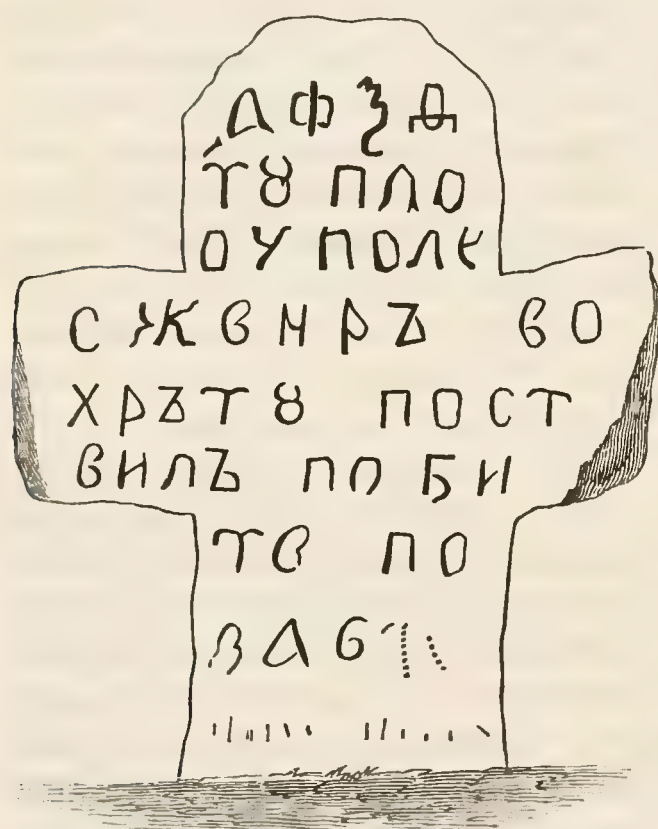 ҂АФѮД
ТȢ ПЛО
ОУ ПОЛК
СЖВНРЪ ВО
ХРЪТȢ ПОСТ
ВИЛЪ ПО БИ
ТВ ПО
ЗАВ